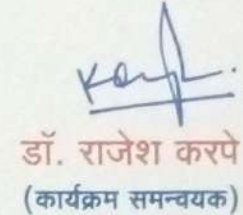 डॉ. राजेश करपे
(कार्यक्रम समन्वयक)